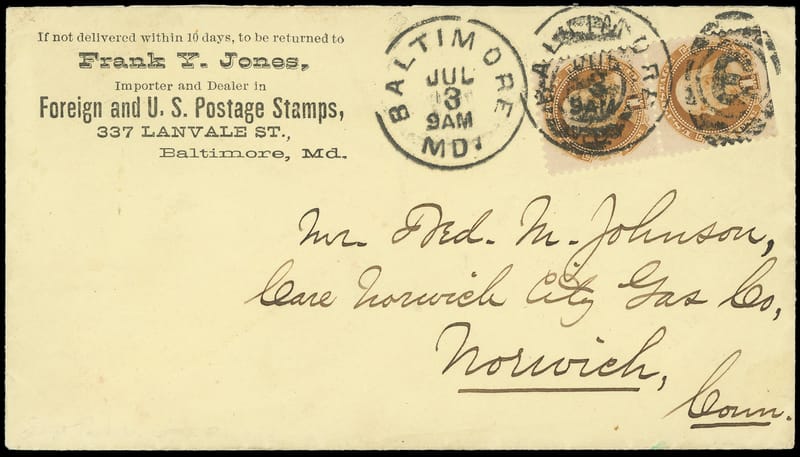 If not delivered within 10 days, to be returned to
Frank Y. Jones,
Importer and Dealer in
Foreign and U. S. Postage Stamps,
337 LANVALE ST.,
Baltimore, Md.
BALTIMORE
JUL
3
9AM
MD.
9AM
Mr. Fred. M. Johnson,
Care Norwich City Gas Co,
Norwich,
Conn.